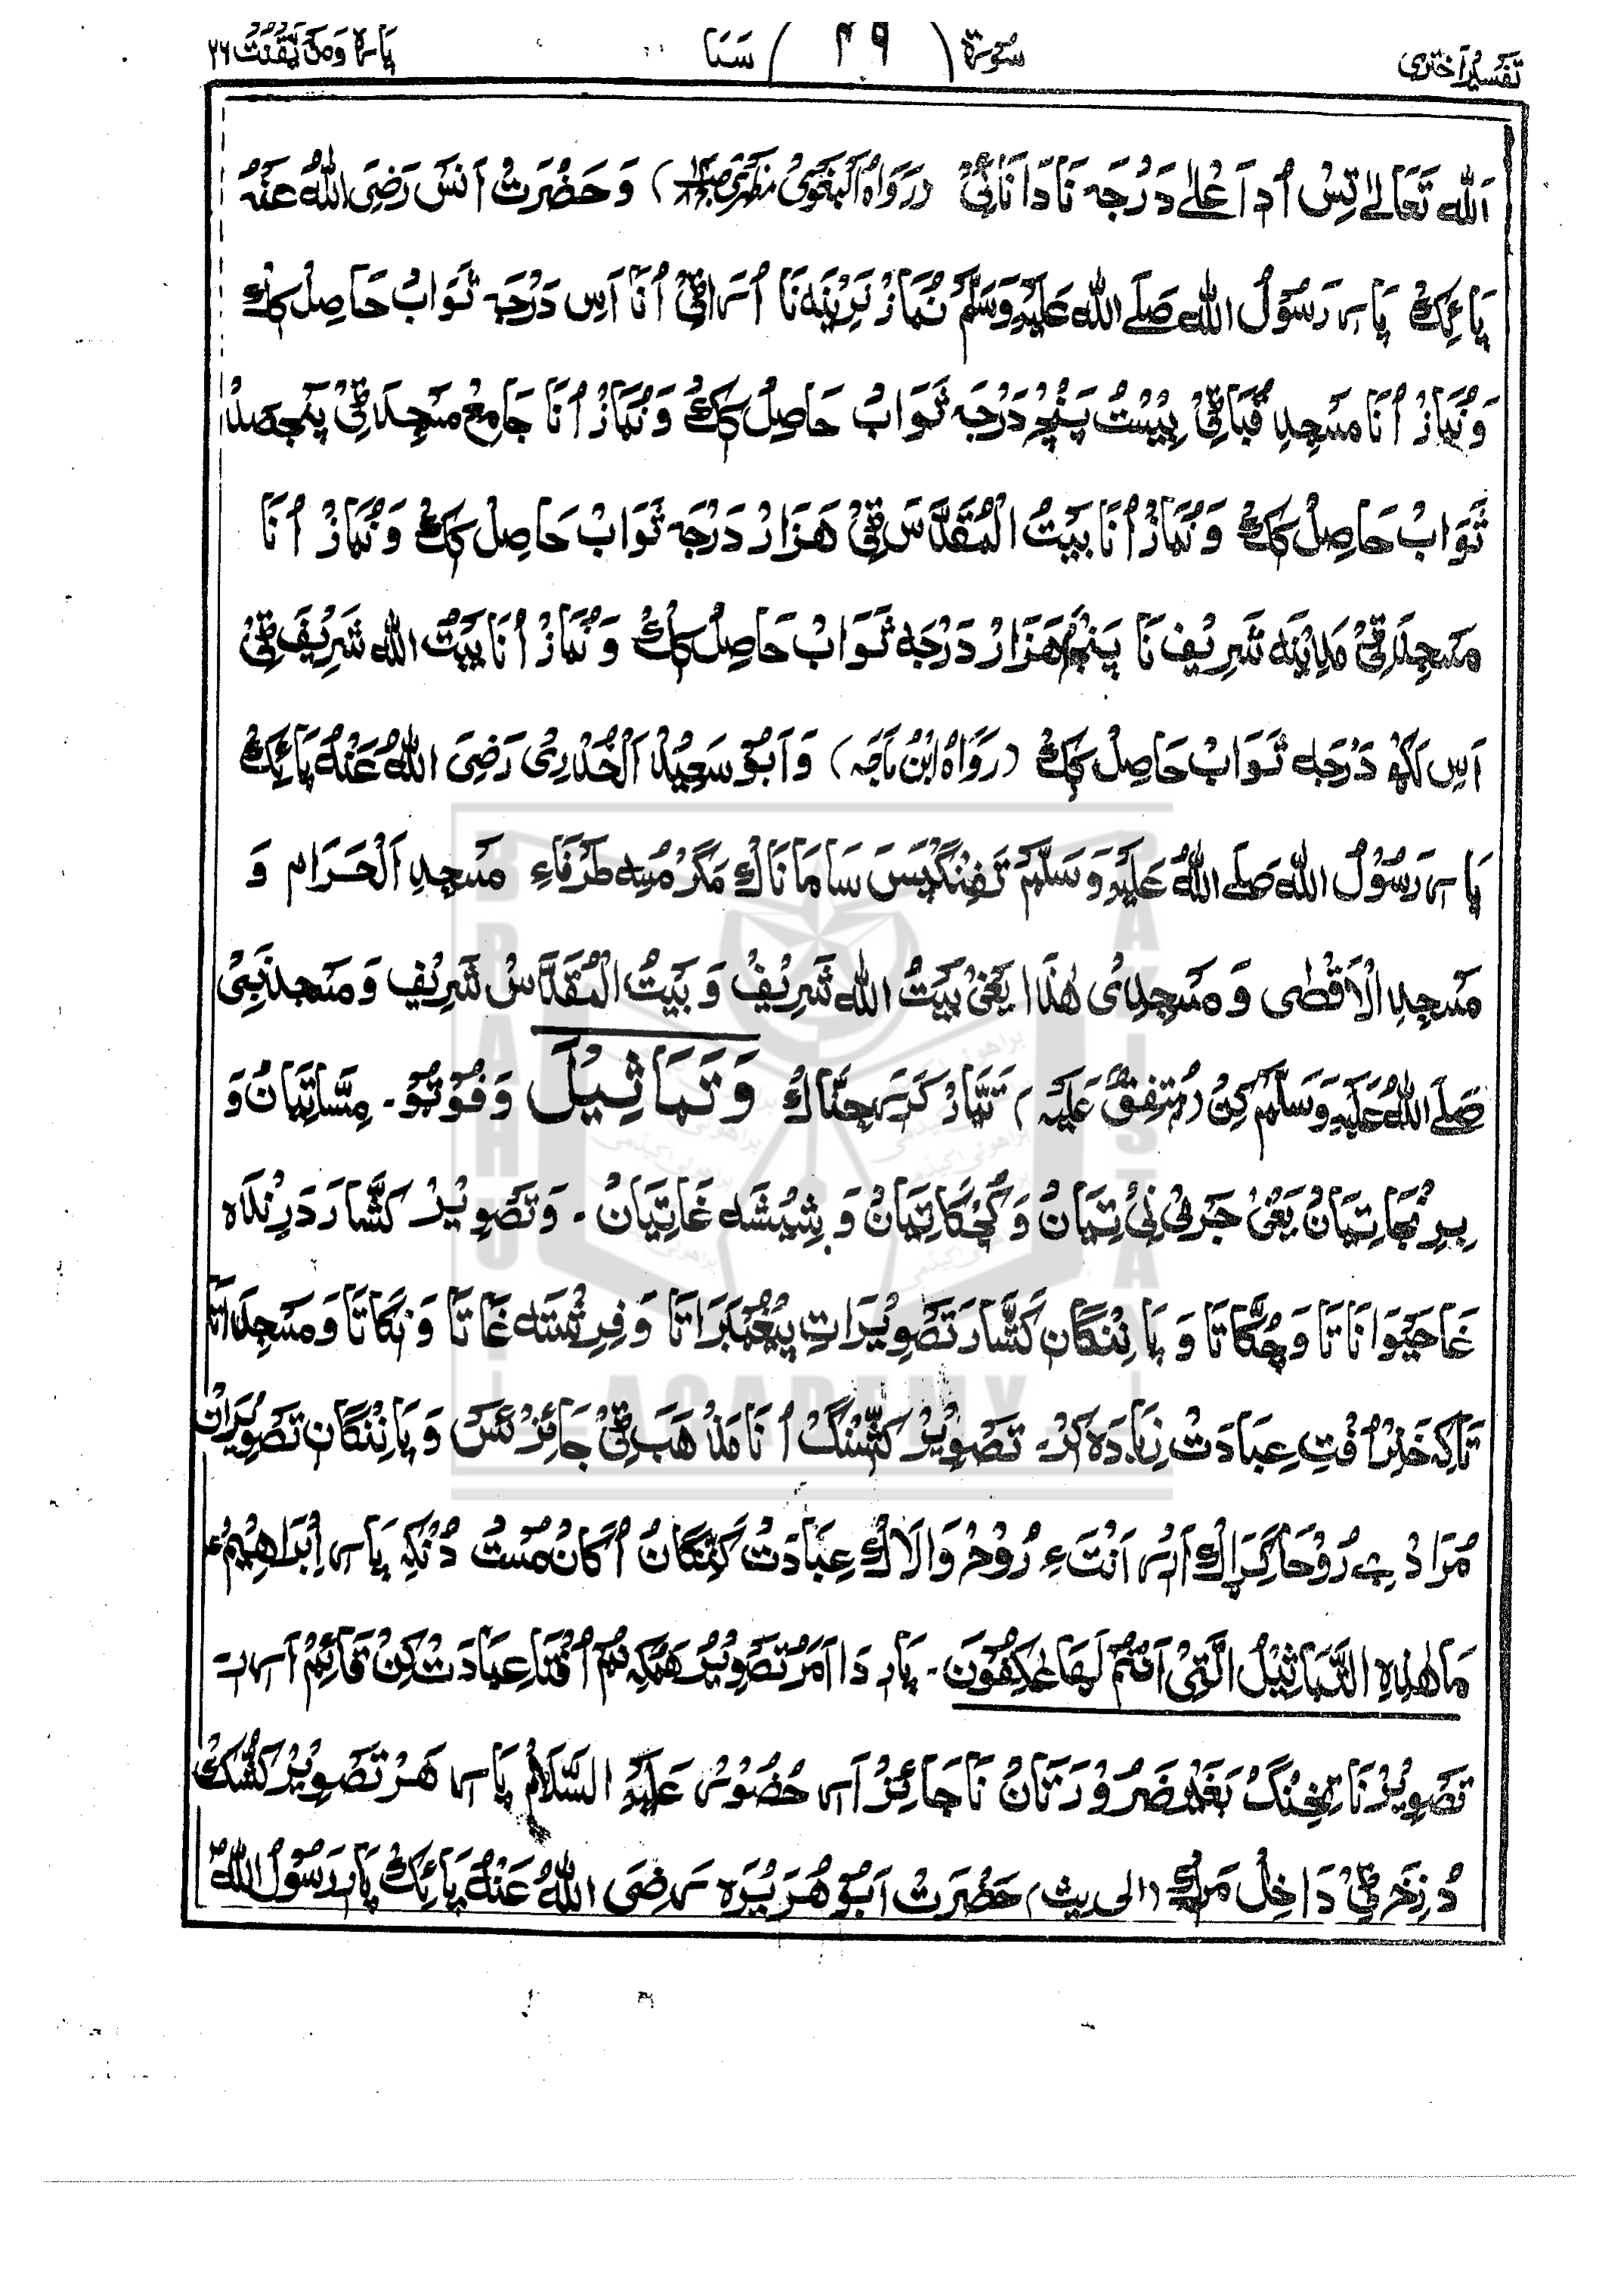 تفسیر اختری سُورَة ( ۴۹ ) سَبَا پَاره وَمَن یَّقنُت ۲۲
اَللّٰه تَعَالٰے تِسْ اُد اَعْلٰے دَرْجَہ نَا دَانَائِیْ (رَوَاهُ الْبَغَوِیْ مظهری) وَ حَضْرَتْ اَنَسْ رَضِیَ اللّٰهُ عَنْهُ
پَائِکْ پَارے رَسُوْلُ اللّٰه صَلَے اللّٰه عَلَیْهِ وَسَلَّمْ نُمَازْ نَرِیْنَه نَا اُرَاٹِیْ اُنَا اَسِ دَرْجَہ ثَوَابْ حَاصِلْ کِکْ
وَ نُمَازْ اُنَا مَسْجِدِ قُبَاٹِیْ بِیْسْتُ پَنْچْ دَرْجَہ ثَوَابْ حَاصِلْ کِکْ وَ نُمَازْ اُنَا جَامِعْ مَسْجِدَ ٹِیْ پَنْجْصَدْ
ثَوَابْ حَاصِلْ کِکْ وَ نُمَازْ اُنَا بَیْتُ الْمُقَدَّسَ ٹِیْ هَزَارْ دَرْجَہ ثَوَابْ حَاصِلْ کِکْ وَ نُمَازْ اُنَا
مَسْجِدَ ٹِیْ مَدِیْنَه شَرِیْف نَا پَنْجَاهْ هَزَارْ دَرْجَہ ثَوَابْ حَاصِلْ کِکْ وَ نُمَازْ اُنَا بَیْتُ اللّٰه شَرِیْفَ ٹِیْ
اَسِ لَکْھ دَرْجَہ ثَوَابْ حَاصِلْ کِکْ (رَوَاهُ ابْنُ مَاجَہ) وَ اَبُوْ سَعِیْدْ اَلْخُدْرِیْ رَضِیَ اللّٰهُ عَنْهُ پَائِکْ
پَارے رَسُوْلُ اللّٰه صَلَے اللّٰهُ عَلَیْهِ وَسَلَّمْ تَفِنْگِپَسَ سَامَانَاکْ مَگَرْ مُسِه طَرْفَاءِ مَسْجِدِ اَلْحَرَام وَ
مَسْجِدِ الْاَقْصٰی وَ مَسْجِدِیْ هٰذَا یَعْنِیْ بَیْتُ اللّٰه شَرِیْفْ وَ بَیْتُ الْمُقَدَّسْ شَرِیْفِ وَ مَسْجِد نَبِیْ
صَلَے اللّٰهُ عَلَیْهِ وَسَلَّمْ کِنْ (مُتَّفَقٌ عَلَیْه) تَیَّارْ کَرَے جِنَّاکْ وَتَمَاثِیْلَ وَ فُوْٹُوْ۔ مِسَّاتِیَانْ وَ
بِرِنْجَاتِیَانْ یَعْنِیْ وَ شِیْشَه غَاتِیَانْ۔ وَ تَصْوِیْرْ کَشَّارَ دَرِنْدَه
غَاحَیْوَانَاتَا وَ چُکَّاتَا وَ پَانِنْگَان کَشَّارَ تَصْوِیْرَاتِ پَیْغَمْبَرَاتَا وَ فِرِشْتَه غَاتَا وَ نِکَاتَا وَ مَسْجِدَاتَا
تَاکِه خَنِرْ اُفْتِ عِبَادَتْ زِیَادَہ کَرْ۔ تَصْوِیْرْ کَشِّنْگْ اُنَا مَذْهَبَ ٹِیْ جَائِزْ ئَسْ وَ پَانِنْگَان تَصْوِیْرَانْ
مُرَادْ بے رُوْحَا گِرَاکْ اَرے اَنْتَءِ رُوْحْ وَالَاکْ عِبَادَتْ کِنِنْگَانْ اُکَانْ مُسْتْ دُنْکِه پَارے اِبْرَاهِیْمْ
مَا هٰذِهِ التَّمَاثِیْلُ الَّتِیْ اَنْتُمْ لَهَا عٰکِفُوْنَ۔ پَارْ دَا اَمَرْ تَصْوِیْرْ هَمْکِه نُمْ اُفْتَا عِبَادَتْ کِنْ قَائِمْ اَرے۔
تَصْوِیْرْ نَا تِخِنْگْ بَغَیْر ضَرُوْرَتَانْ نَاجَائِزْ اَرے حُضُوْرْ عَلَیْهِ السَّلَامْ پَارے هَرْ تَصْوِیْر کَشُّکْ
دُزَخَ ٹِیْ دَاخِلْ مَرِکْ (الحدیث) حَضْرَتْ اَبُوْ هُرَیْرَه رَضِیَ اللّٰهُ عَنْهُ پَائِکْ پَارے رَسُوْلُ اللّٰهِ
BRAHUI ACADEMY PAKISTAN